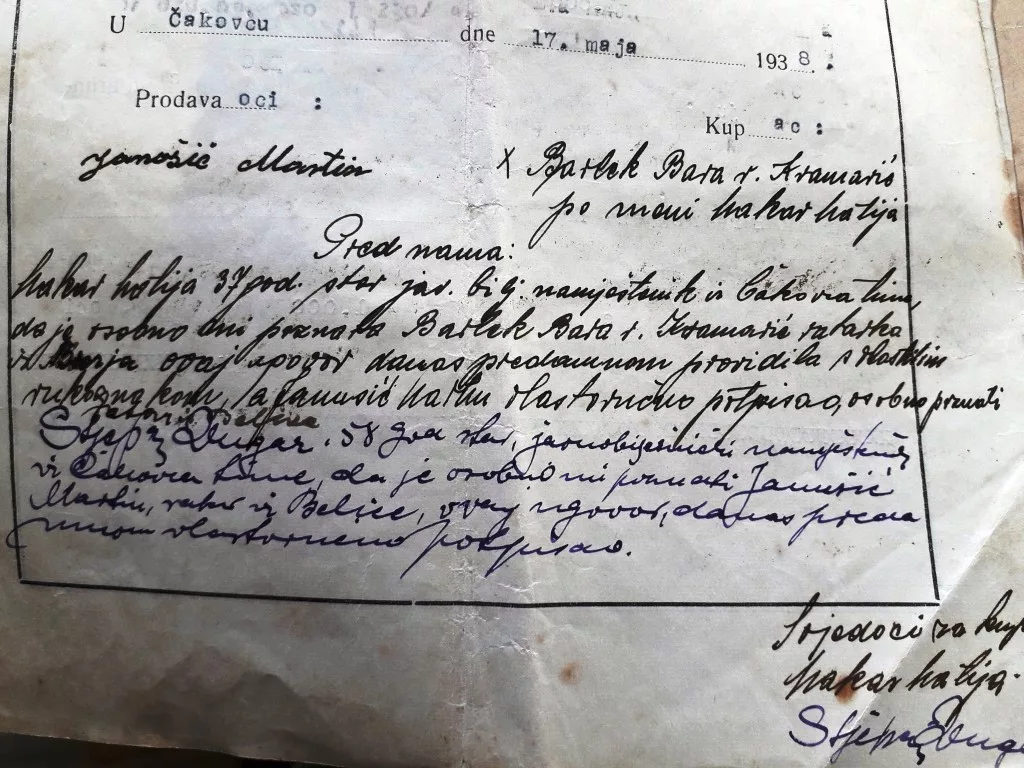 U Čakovcu dne 17. maja 1938.:
Prodava oci :
Kup ac :
Janošić Martin
X Bartek Bara r. Kramarić
po meni Makar Matija
Pred nama:
Makar Matija 37 god. star jav. bilj. namještenik iz Čakovca time,
da je osobno mi poznata Bartek Bara r. Kramarić ratarka
iz ovaj ugovor danas predamnom providila s vlastitim
rukoznakom, a Janušić Martin vlastoručno potpisao, osobno poznati
ratar iz Belice
Stjepan Dugar 58 god star, javnobilježnički namještenik
iz Čakovca time, da je osobno mi poznati Janušić
Martin, ratar iz Belice, ovaj ugovor, danas preda
mnom vlastoručno potpisao.
Svjedoci za
Makar Matija
Stjepan